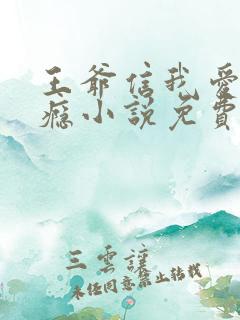 王爷信我爱
瘾小說免費
三雲謹
未经同意禁止转载